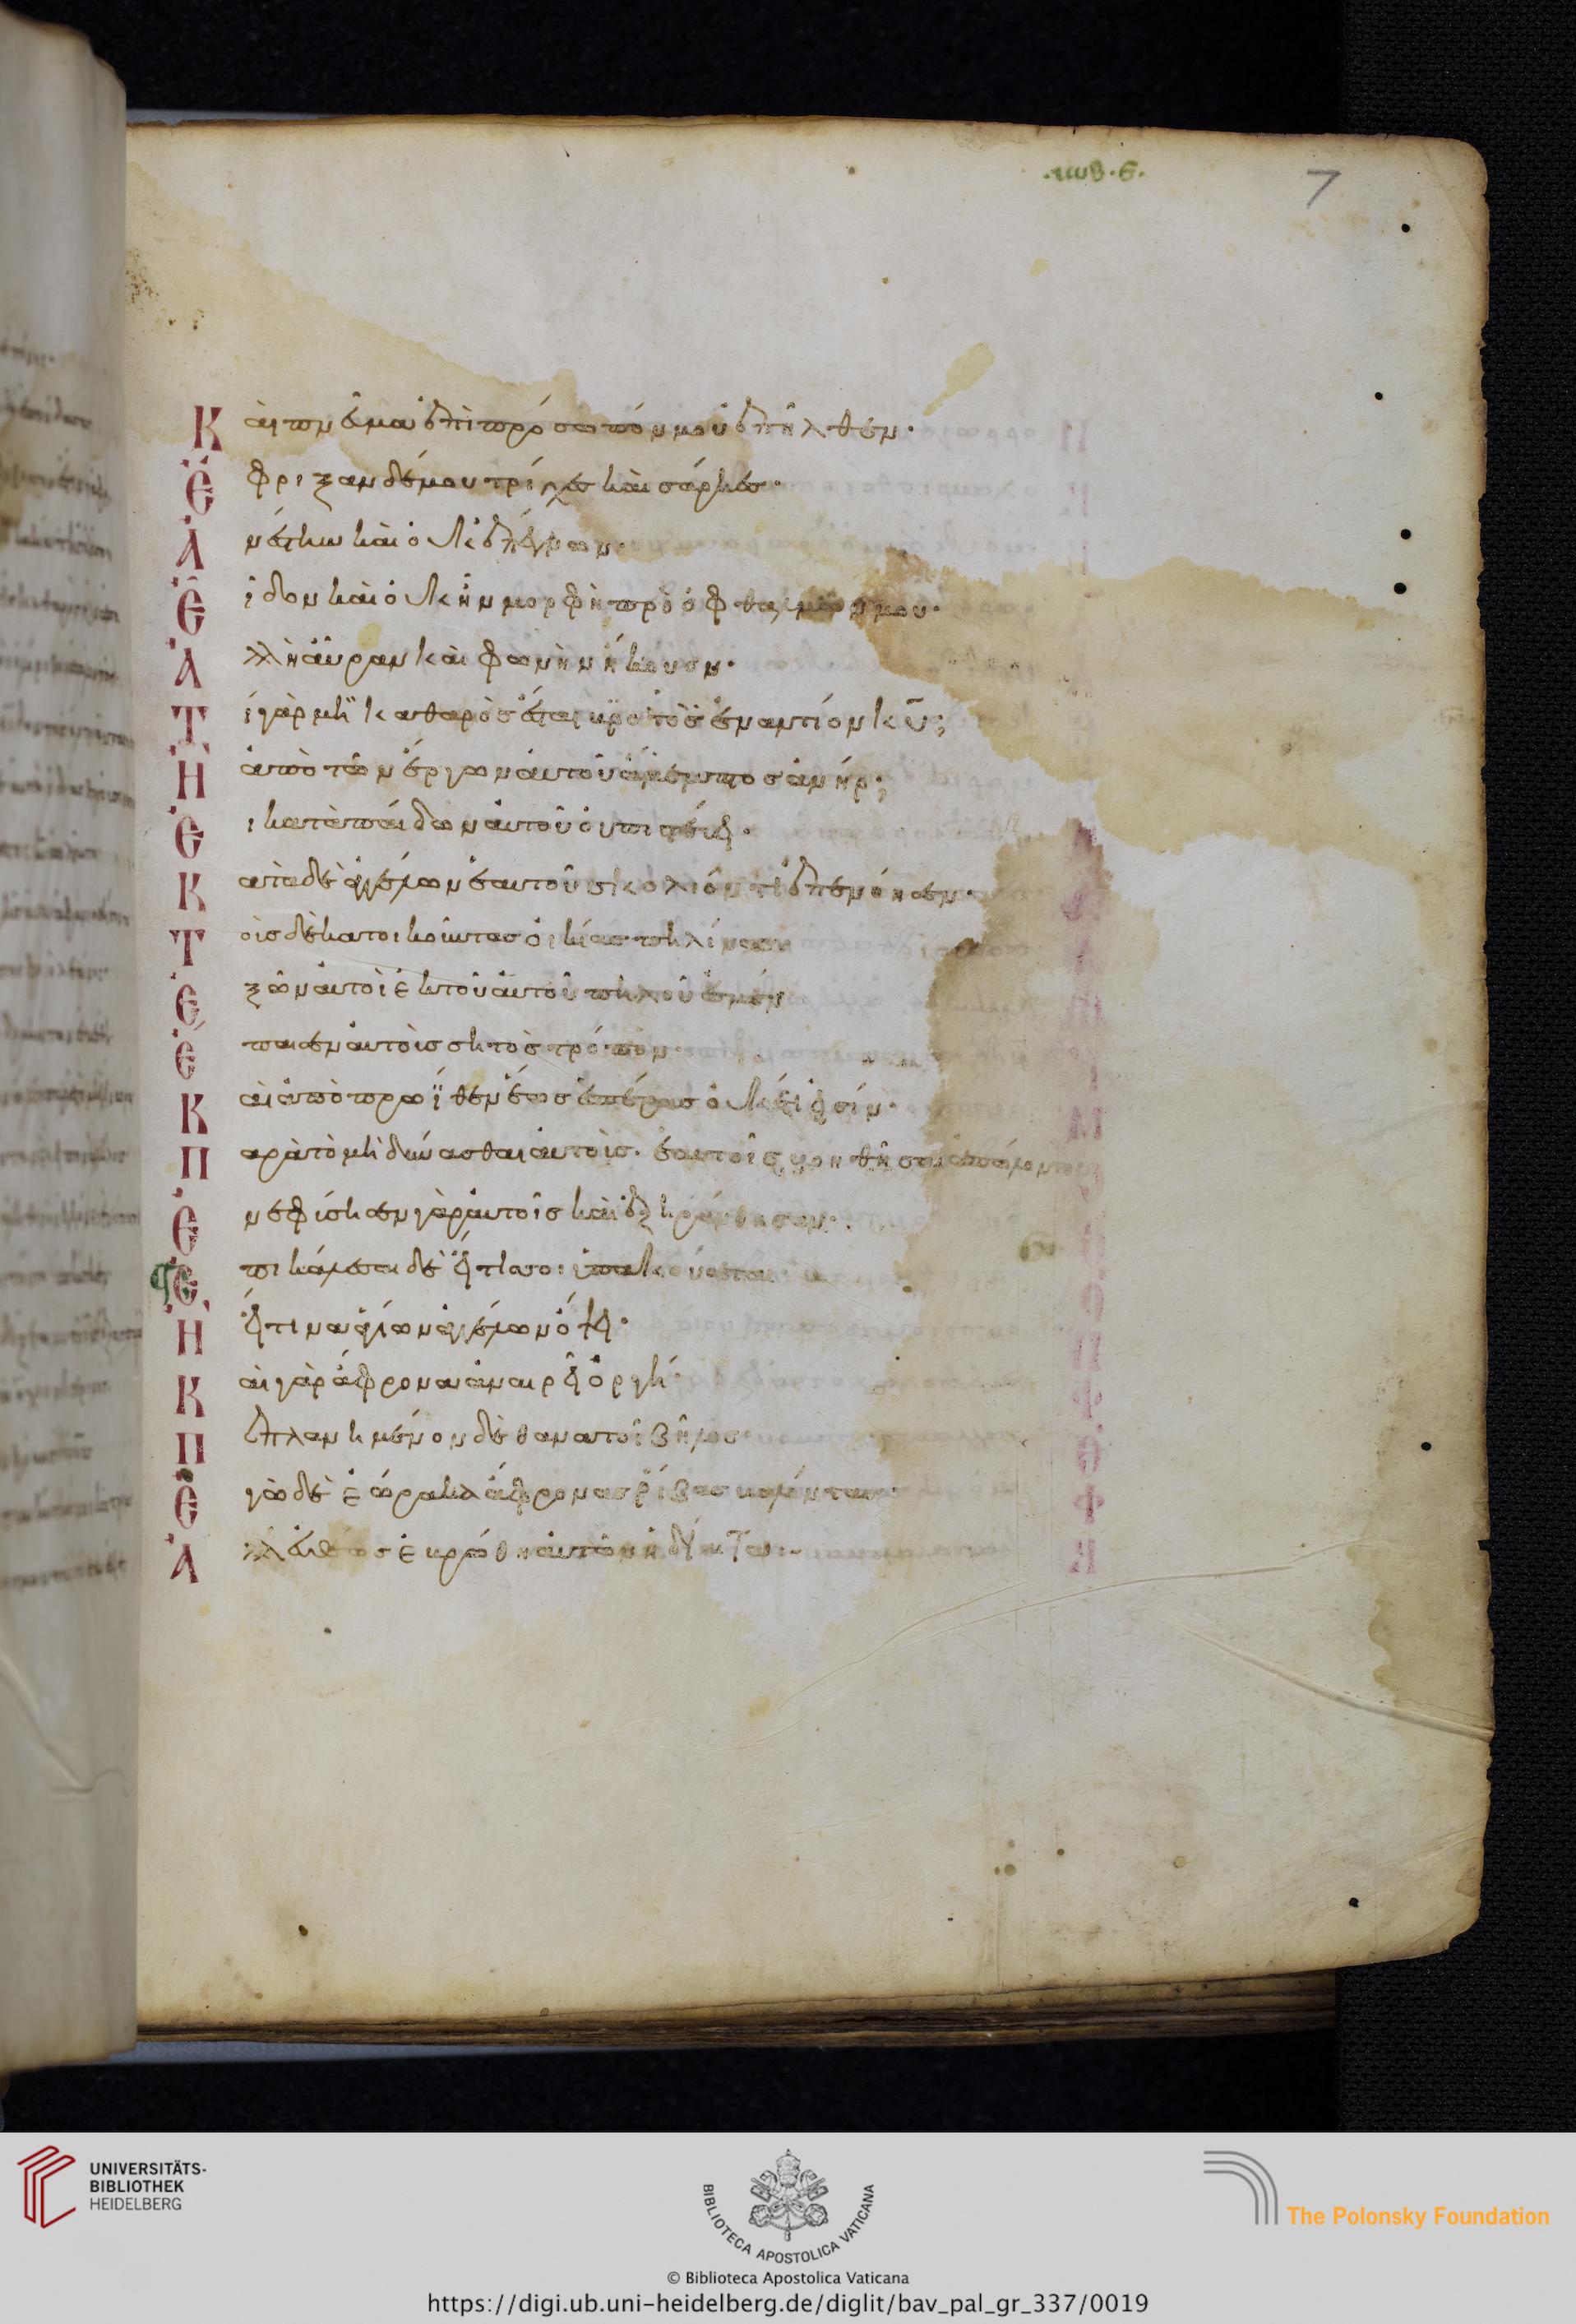 7
Κ ὰι πνεῦμα ἐπὶ πρόσωπόν μου ἐπῆλθεν·
Ἔ φριξαν δέ μου τρίχες καὶ σάρκες·
Ἀ νέστην καὶ οὐκ ἐπέγνων·
Ἐ ῖδον καὶ οὐκ ἦν μορφὴ πρὸ ὀφθαλμῶν μου·
Ἀ λλ' ἢ ἄυραν καὶ φωνὴν ἤκουον·
Τ ί γὰρ μὴ καθαρὸς ἔσται βροτὸς ἐναντίον κυ;
Ἢ ἀπὸ τῶν ἔργων ἀυτοῦ ἄμεμπτος ἀνήρ;
Ἐ ι κατὰ παίδων ἀυτοῦ οὐ πιστεύει·
Κ ατὰ δὲ ἀγγέλων ἑαυτοῦ σκολιόν τι ἐπενόησεν·
Τ οὺς δὲ κατοικοῦντας οἰκίας πηλίνας
Ἐ ξ ὧν ἀυτοὶ ἐκ τοῦ ἀυτοῦ πηλοῦ ἐσμέν
Ἔ παισεν ἀυτοὺς σητὸς τρόπον·
Κ αὶ ἀπὸ πρωΐθεν ἕως ἑσπέρας οὐκ ἔτι εἰσίν·
Π αρὰ τὸ μὴ δύνασθαι ἀυτοὺς ἑαυτοῖς βοηθῆσαι ἀπώλοντο
Ἐ νεφύσησεν γὰρ ἀυτοῖς καὶ ἐξηράνθησαν·
Ἐ πικάλεσαι δὲ εἴ τίς σοι ὑπακούσεται
Ἢ εἴ τινα ἁγίων ἀγγέλων ὄψει·
Κ αὶ γὰρ ἄφρονα ἀναιρεῖ ὀργή·
Π επλανημένον δὲ θανατοῖ ζῆλος·
Ἐ γὼ δὲ ἑώρακα ἄφρονας ῥίζας βαλόντας
Ἀ λλ' εὐθέως ἐβρώθη ἀυτῶν ἡ δίαιτα·
UNIVERSITÄTS-
BIBLIOTHEK
HEIDELBERG
BIBLIOTECA APOSTOLICA VATICANA
The Polonsky Foundation
© Biblioteca Apostolica Vaticana
https://digi.ub.uni-heidelberg.de/diglit/bav_pal_gr_337/0019